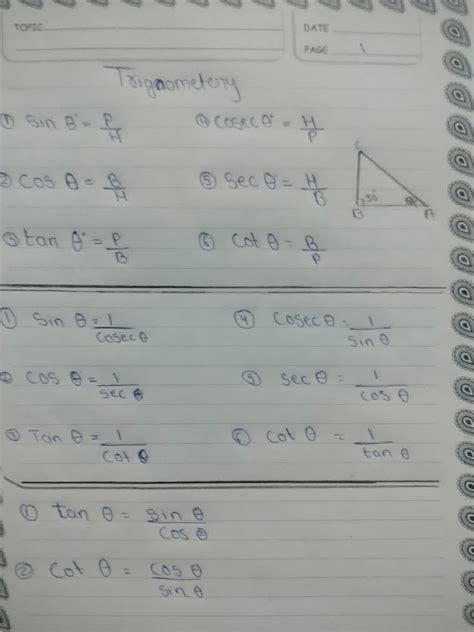 TOPIC DATE
PAGE 1
Trignometery
① sin θ° = P/H ④ cosec θ° = H/P
② cos θ = B/H ⑤ sec θ° = H/B
③ tan θ° = P/B ⑥ cot θ = B/P
C
90°
B θ A
① sin θ = 1/cosec θ ④ cosec θ = 1/sin θ
② cos θ = 1/sec θ ⑤ sec θ = 1/cos θ
③ Tan θ = 1/cot θ ⑥ cot θ = 1/tan θ
① tan θ = sin θ/cos θ
② cot θ = cos θ/sin θ